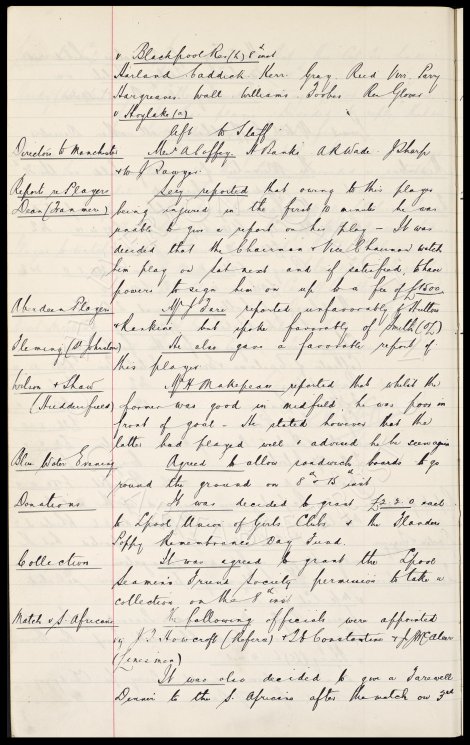 v Blackpool Res (h) 8th inst
Harland Caddick Kerr Gray Reed Wm. Parry
Hargreaves Wall Williams Forbes Rev Glover
v Hoylake (a)
left to Staff
Directors to Manchester Messrs A Coffey. H Banks A R Wade J Sharp
& W J Sawyer
Report re Players Secy reported that owing to this player
Dean (Tranmere) being injured in the first 10 minutes he was
unable to give a report on his play - It was
decided that the Chairman & Vice Chairman watch
him play on Sat next and if satisfied, to have
powers to sign him on up to a fee of £1500
Aberdeen Players Mr J Fare reported unfavorably of Hutton
& Rankine but spoke favorably of Smith (OL)
Fleming (St Johnston) He also gave a favorable report of
this player
Wilson & Shaw Mr H Makepeace reported that whilst the
(Huddersfield) former was good in midfield he was poor in
front of goal - He stated however that the
latter had played well & advised he be seen again
Blue Water Evening Agreed to allow sandwich boards to go
round the ground on 8th & 15th inst
Donations It was decided to grant £2.2.0 each
to Lpool Union of Girls Clubs & the Flanders
Poppy Remembrance Day Fund.
Collection It was agreed to grant the Lpool
Seamens Friend Society permission to take a
collection on the 8th inst
Match v S. Africans The following officials were appointed
vg J T Howcroft (Referee) & Constantine & McAlear
(Linesmen)
It was also decided to give a Farewell
Dinner to the S. Africans after the match on 3rd